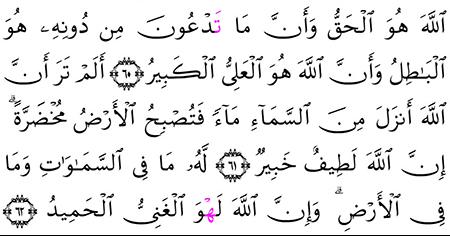 ٱللَّهَ هُوَ ٱلْحَقُّ وَأَنَّ مَا تَدْعُونَ مِن دُونِهِۦ هُوَ
ٱلْبَٰطِلُ وَأَنَّ ٱللَّهَ هُوَ ٱلْعَلِىُّ ٱلْكَبِيرُ ٦٠ أَلَمْ تَرَ أَنَّ
ٱللَّهَ أَنزَلَ مِنَ ٱلسَّمَآءِ مَآءً فَتُصْبِحُ ٱلْأَرْضُ مُخْضَرَّةً ۗ
إِنَّ ٱللَّهَ لَطِيفٌ خَبِيرٌ ٦١ لَّهُۥ مَا فِى ٱلسَّمَٰوَٰتِ وَمَا
فِى ٱلْأَرْضِ ۗ وَإِنَّ ٱللَّهَ لَهْوَ ٱلْغَنِىُّ ٱلْحَمِيدُ ٦٢